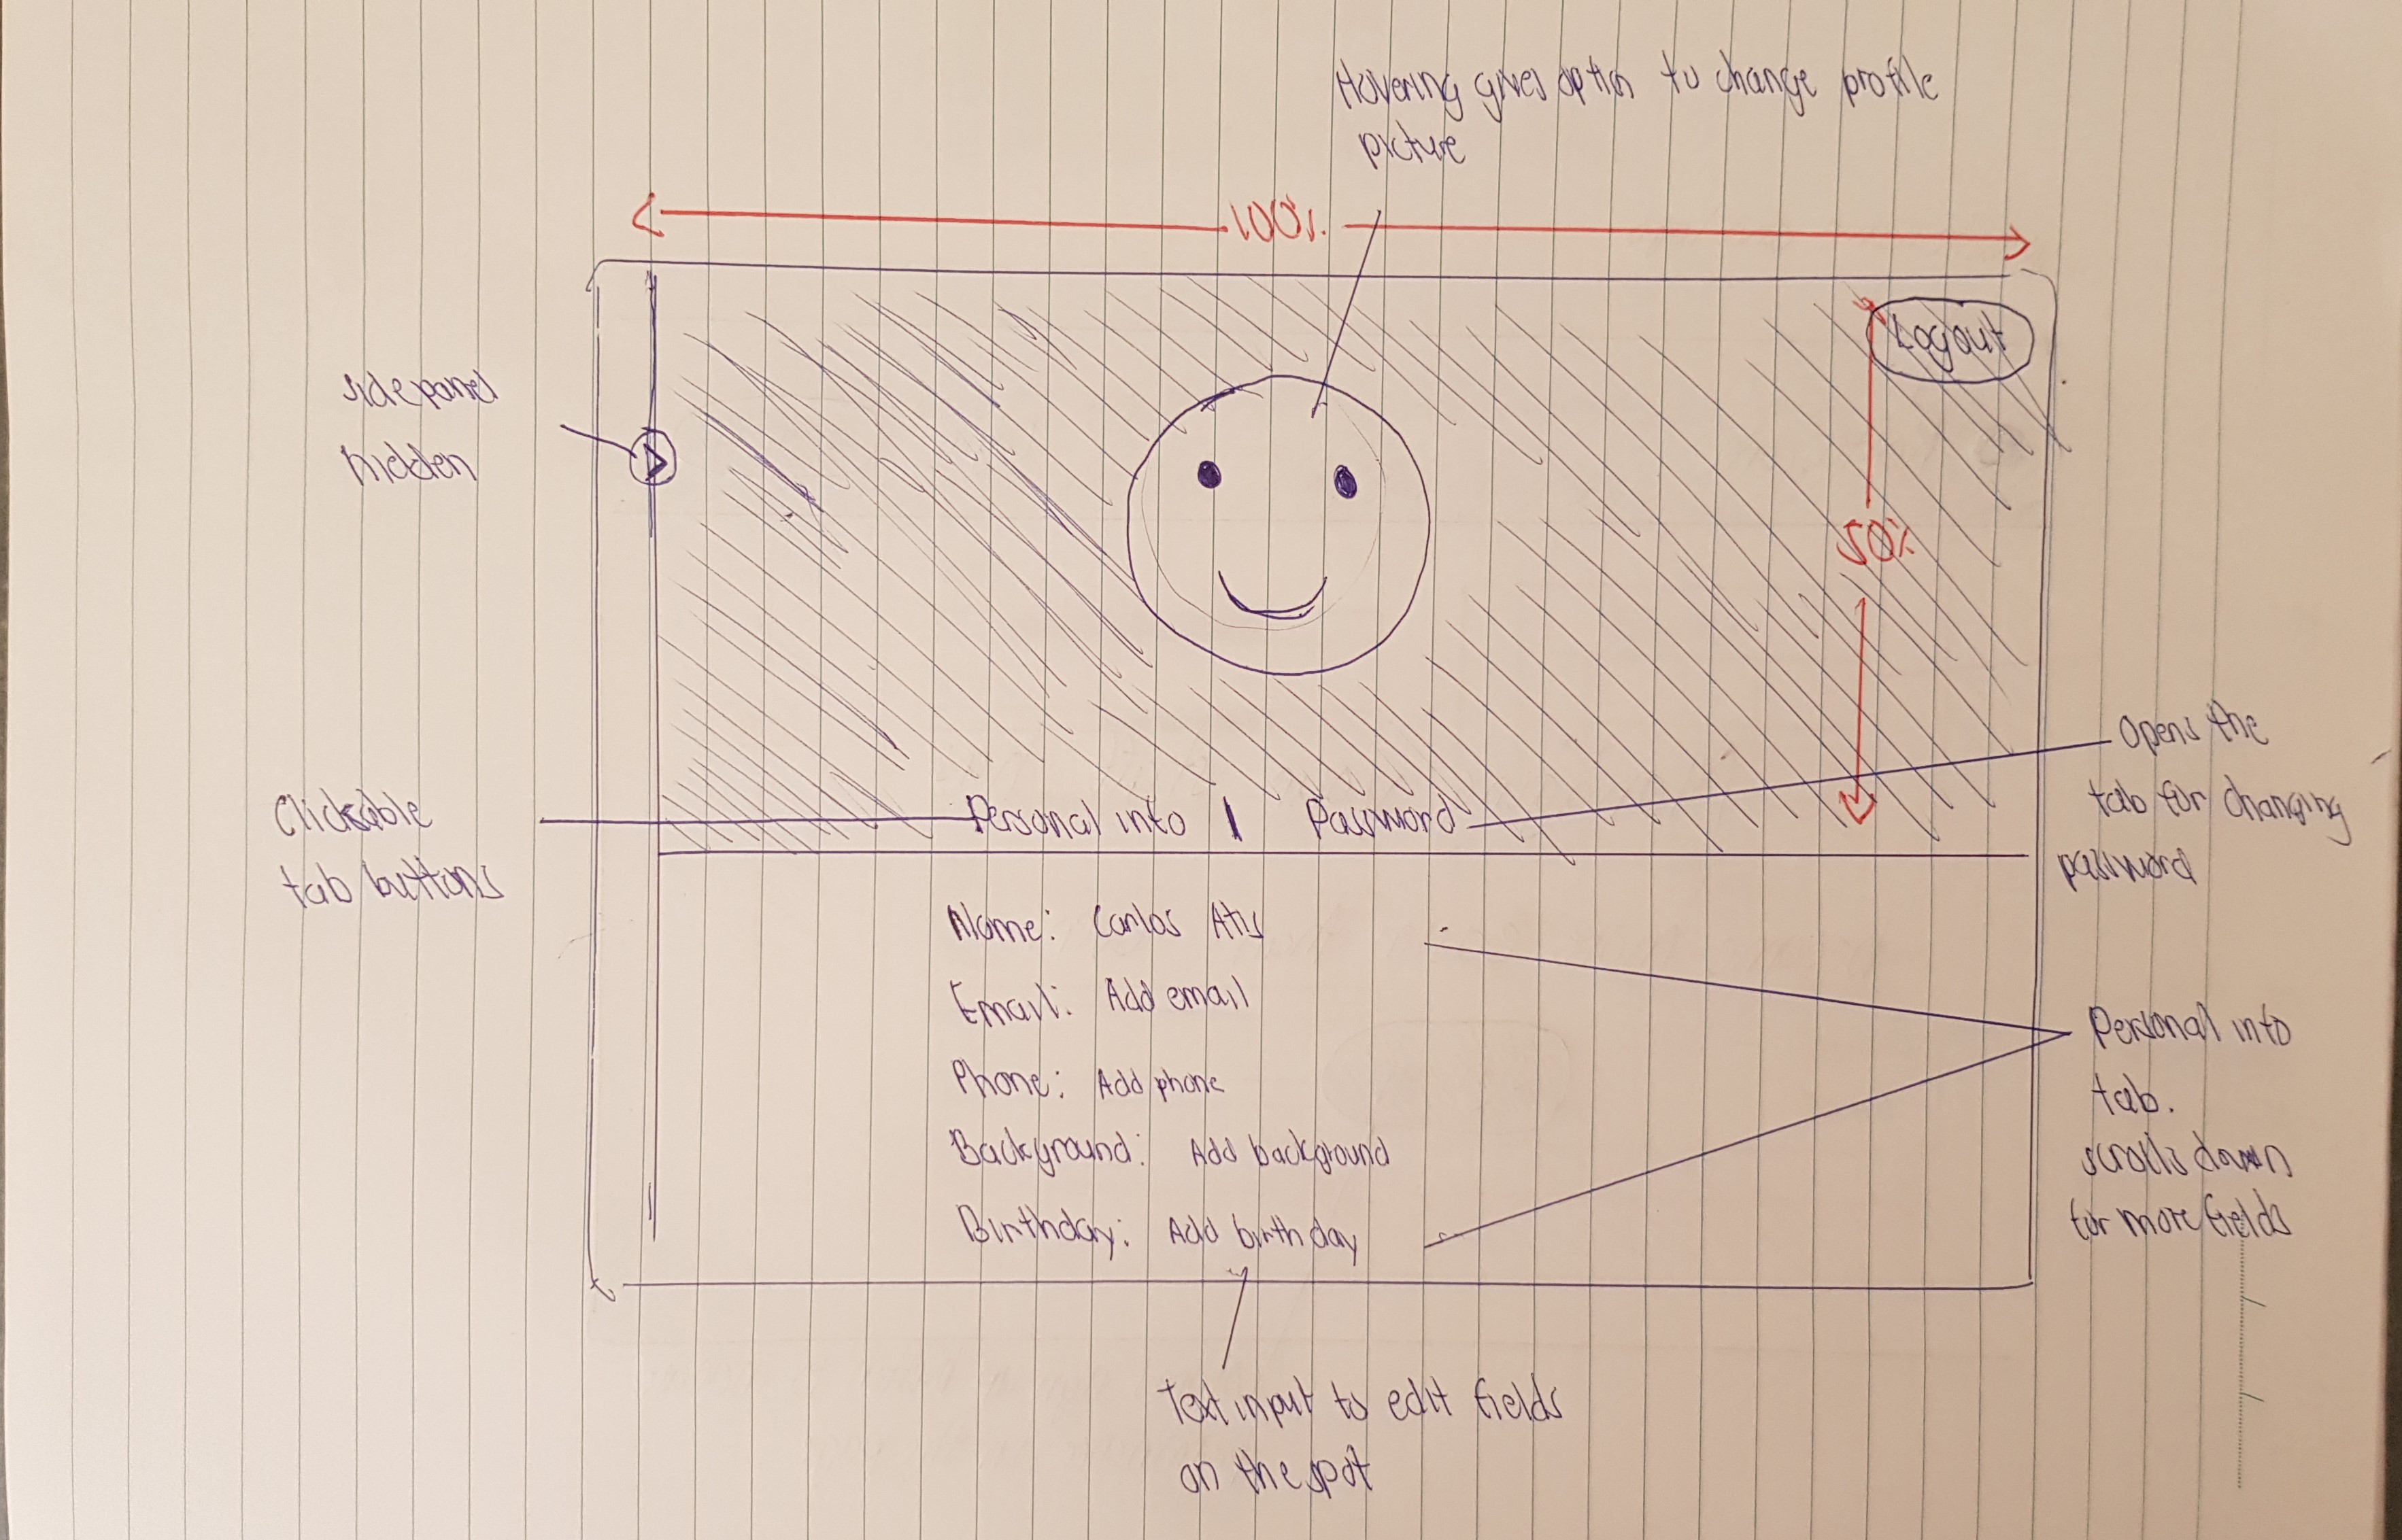 Hovering gives option to change profile
picture
100%
Logout
side panel
hidden
50%
Opens the
tab for changing
password
Clickable
tab buttons
Personal info | Password
Name: Carlos Atis
Email: Add email
Phone: Add phone
Background: Add background
Birthday: Add birthday
Personal info
tab.
scrolls down
for more fields
Text input to edit fields
on the spot